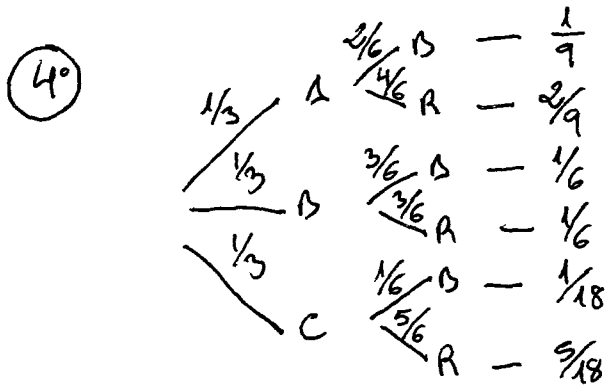 4°
2/6 B — 1/9
1/3 A 4/6 R — 2/9
1/3 B 3/6 B — 1/6
3/6 R — 1/6
1/3 C 1/6 B — 1/18
5/6 R — 5/18